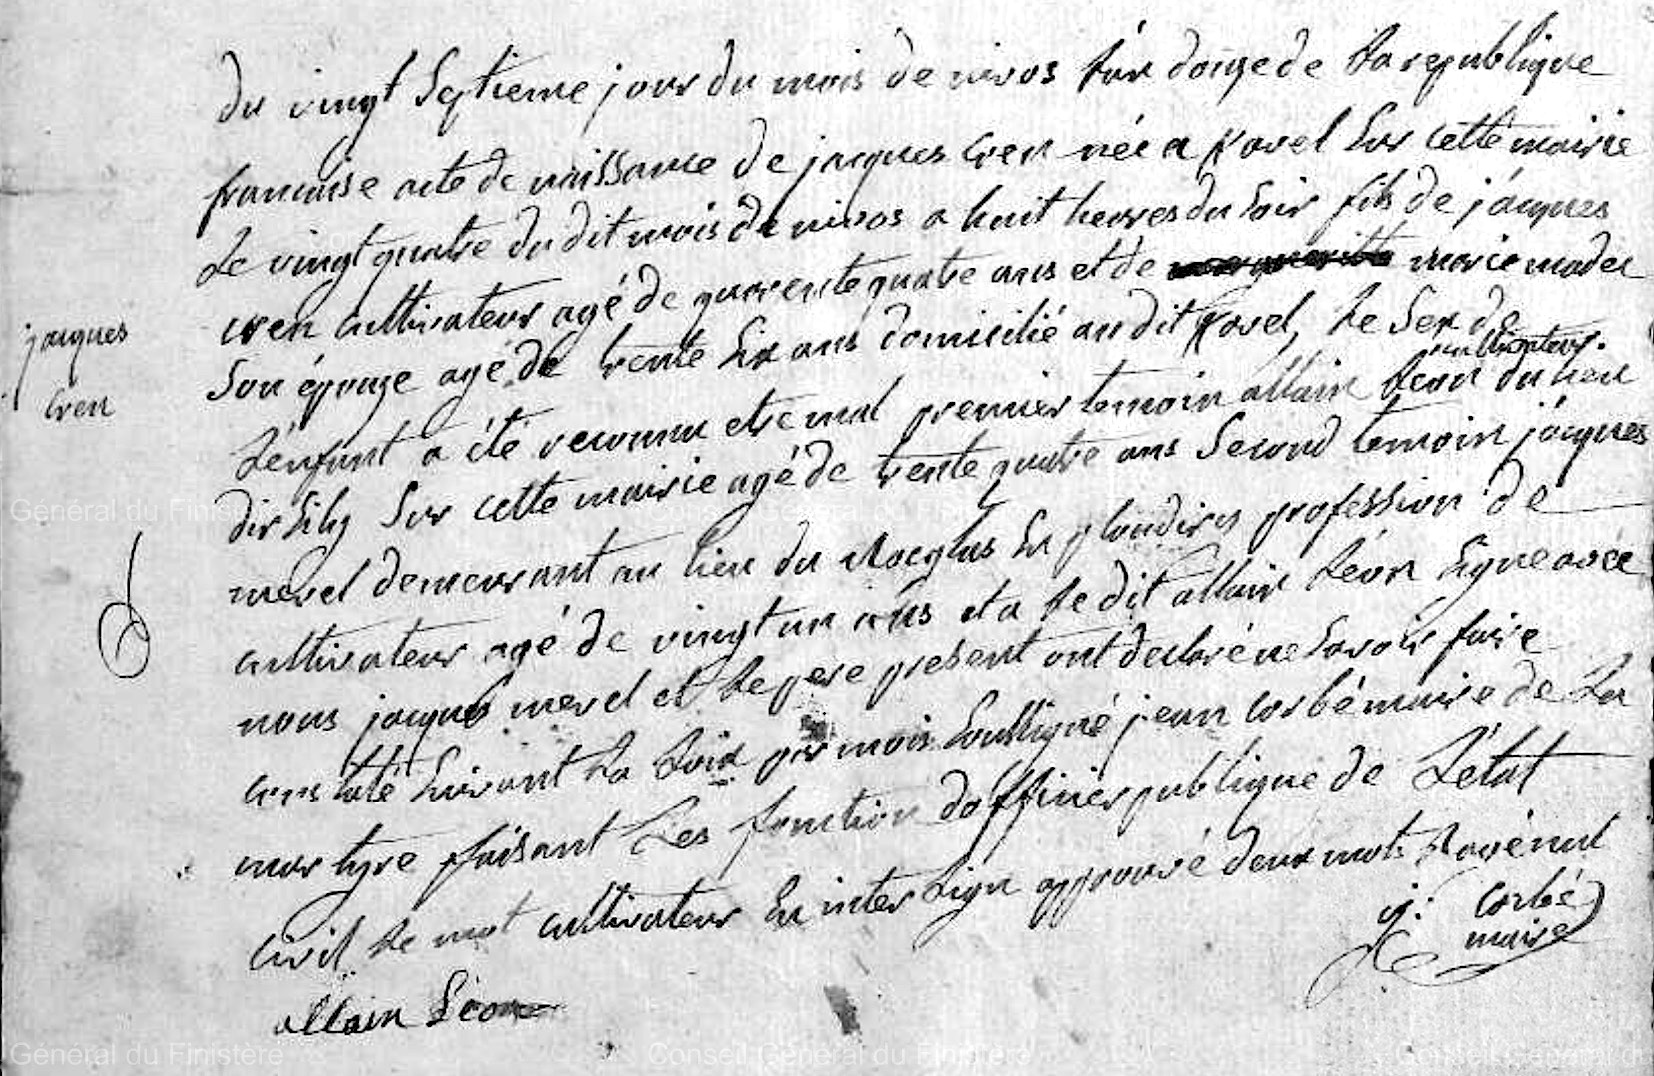 du vingt Septieme jour du mois de nivos l'an douze de La republique
francaise acte de naissance de jacques cren née a Kavel Sur cette mairie
Le vingt quatre du dit mois de nivos a huit heures du Soir fils de jacques
cren cultivateur agé de quarente quatre ans et de marie madec
Son épouze agé de trente Six ans domicilié au dit Kavel, Le Sex de
cultivateur.
L'enfant a été reconnu etre mal premier temoin allain Léon du lieu
Sur cette mairie agé de trente quatre ans Second temoin jacques
mevel demeurant au lieu du En ploudiry profession de
cultivateur agé de vingt un ans et a Le dit allain Léon Signe avec
nous jacques mevel et Le pere present ont declaré ne Savoir faire
constaté Suivant La Loix par mois Soussigné jean corbé maire de La
martyre faisant Les fonction dofficier publique de L'état
civil Le mot cultivateur En inter Lign approuvé deux mots nul
jacques
cren
j: corbé
maire
allain Léon
Général du Finistère
Général du Finistère
Conseil Général du Finistère
Conseil Général du